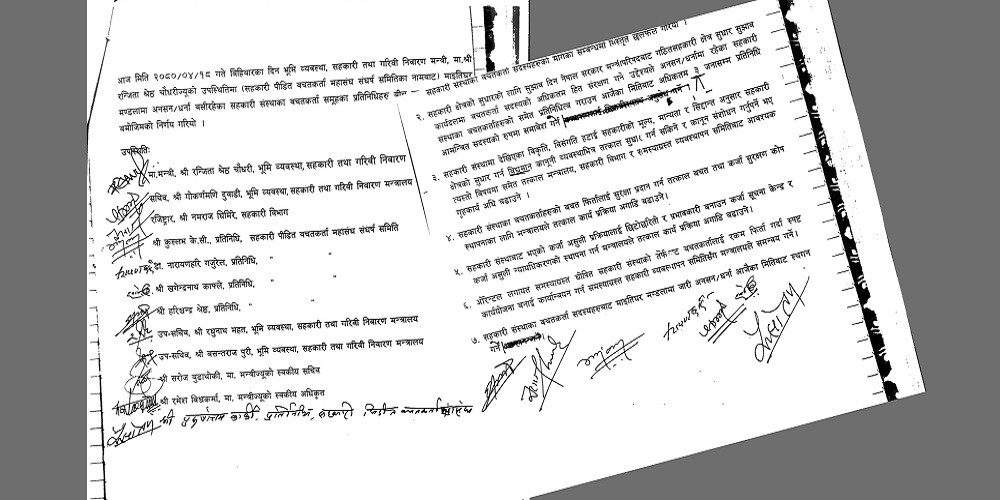 आज मिति २०८०/०४/१८ गते बिहिबारका दिन भूमि व्यवस्था, सहकारी तथा गरिवी निवारण मन्त्री, मा.श्री
रन्जिता श्रेष्ठ चौधरीज्यूको उपस्थितिमा (सहकारी पीडित बचतकर्ता महासंघ संघर्ष समितिका नामबाट) माइतिघर
मण्डलामा अनसन/धर्ना बसीरहेका सहकारी संस्थाका बचतकर्ता समूहका प्रतिनिधिहरु बीच
बमोजिमको निर्णय गरियो ।
उपस्थितिः
मा.मन्त्री, श्री रन्जिता श्रेष्ठ चौधरी, भूमि व्यवस्था,सहकारी तथा गरिवी निवारण
सचिव, श्री गोकर्णमणि दुवाडी, भूमि व्यवस्था,सहकारी तथा गरिवी निवारण मन्त्रालय
रजिष्ट्रार, श्री नमराज घिमिरे, सहकारी विभाग
श्री कुस्लभ के.सी., प्रतिनिधि, सहकारी पीडित बचतकर्ता महासंघ संघर्ष समिति
डा. नारायणहरि गजुरेल, प्रतिनिधि, " "
श्री खगेन्द्रनाथ काफ्ले, प्रतिनिधि, " "
श्री हरिश्चन्द्र श्रेष्ठ, प्रतिनिधि, " "
उप-सचिव, श्री रघुनाथ महत, भूमि व्यवस्था, सहकारी तथा गरिवी निवारण मन्त्रालय
उप-सचिव, श्री बसन्तराज पुरी, भूमि व्यवस्था, सहकारी तथा गरिवी निवारण मन्त्रालय
श्री सरोज बुढाथोकी, मा. मन्त्रीज्यूको स्वकीय सचिव
श्री रमेश विश्वकर्मा, मा. मन्त्रीज्यूको स्वकीय अधिकृत
श्री कार्की, प्रतिनिधि, सहकारी पिडित बचतकर्ता महासंघ
सहकारी संस्थाका बचतकर्ता सदस्यहरुका मागका सम्बन्धमा विस्तृत छलफल गरियो ।
२. सहकारी क्षेत्रको सुधारको लागि सुझाव दिन नेपाल सरकार मन्त्रिपरिषदबाट गठितसहकारी क्षेत्र सुधार सुझाव
कार्यदलमा बचतकर्ता सदस्यको अधिकतम हित संरक्षण गर्ने उद्देश्यले अनसन/धर्नामा रहेका सहकारी
संस्थाका बचतकर्ताहरुको समेत प्रतिनिधित्व गराउन आजैका मितिबाट अधिकतम ३ जनासम्म प्रतिनिधि
आमन्त्रित सदस्यको रुपमा समावेश गर्ने
३. सहकारी संस्थामा देखिएका विकृति, विसंगति हटाई सहकारीको मूल्य, मान्यता र सिद्धान्त अनुसार सहकारी
क्षेत्रको सुधार गर्न विद्यमान कानूनी व्यवस्थाभित्र तत्काल सुधार गर्न सकिने र कानून संशोधन गर्नुपर्ने भए
त्यस्तो बिषयमा समेत तत्काल मन्त्रालय, सहकारी विभाग र समस्याग्रस्त व्यवस्थापन समितिबाट आवश्यक
गृहकार्य अघि बढाउने ।
४. सहकारी संस्थाका बचतकर्ताहरुको बचत फिर्तालाई सुरक्षा प्रदान गर्न तत्काल बचत तथा कर्जा सुरक्षण कोष
स्थापनाका लागि मन्त्रालयले तत्काल कार्य प्रक्रिया अगाडि बढाउने।
५. सहकारी संस्थाबाट भएको कर्जा असुली प्रक्रियालाई छिटोछरितो र प्रभावकारी बनाउन कर्जा सूचना केन्द्र र
कर्जा असुली न्यायाधिकरणको स्थापना गर्न मन्त्रालयले तत्काल कार्य प्रक्रिया अगाडि बढाउने।
६. ओरिन्टल लगायत समस्याग्रस्त घोषित सहकारी संस्थाको तर्फबाट बचतकर्तालाई रकम फिर्ता गर्दा स्पष्ट
कार्ययोजना बनाई कार्यान्वयन गर्न समस्याग्रस्त सहकारी व्यवस्थापन समितिसँग मन्त्रालयले समन्वय गर्ने।
७. सहकारी संस्थाका बचतकर्ता सदस्यहरुबाट माइतिघर मण्डलामा जारी अनसन/धर्ना आजैका मितिबाट स्थगन
गर्ने